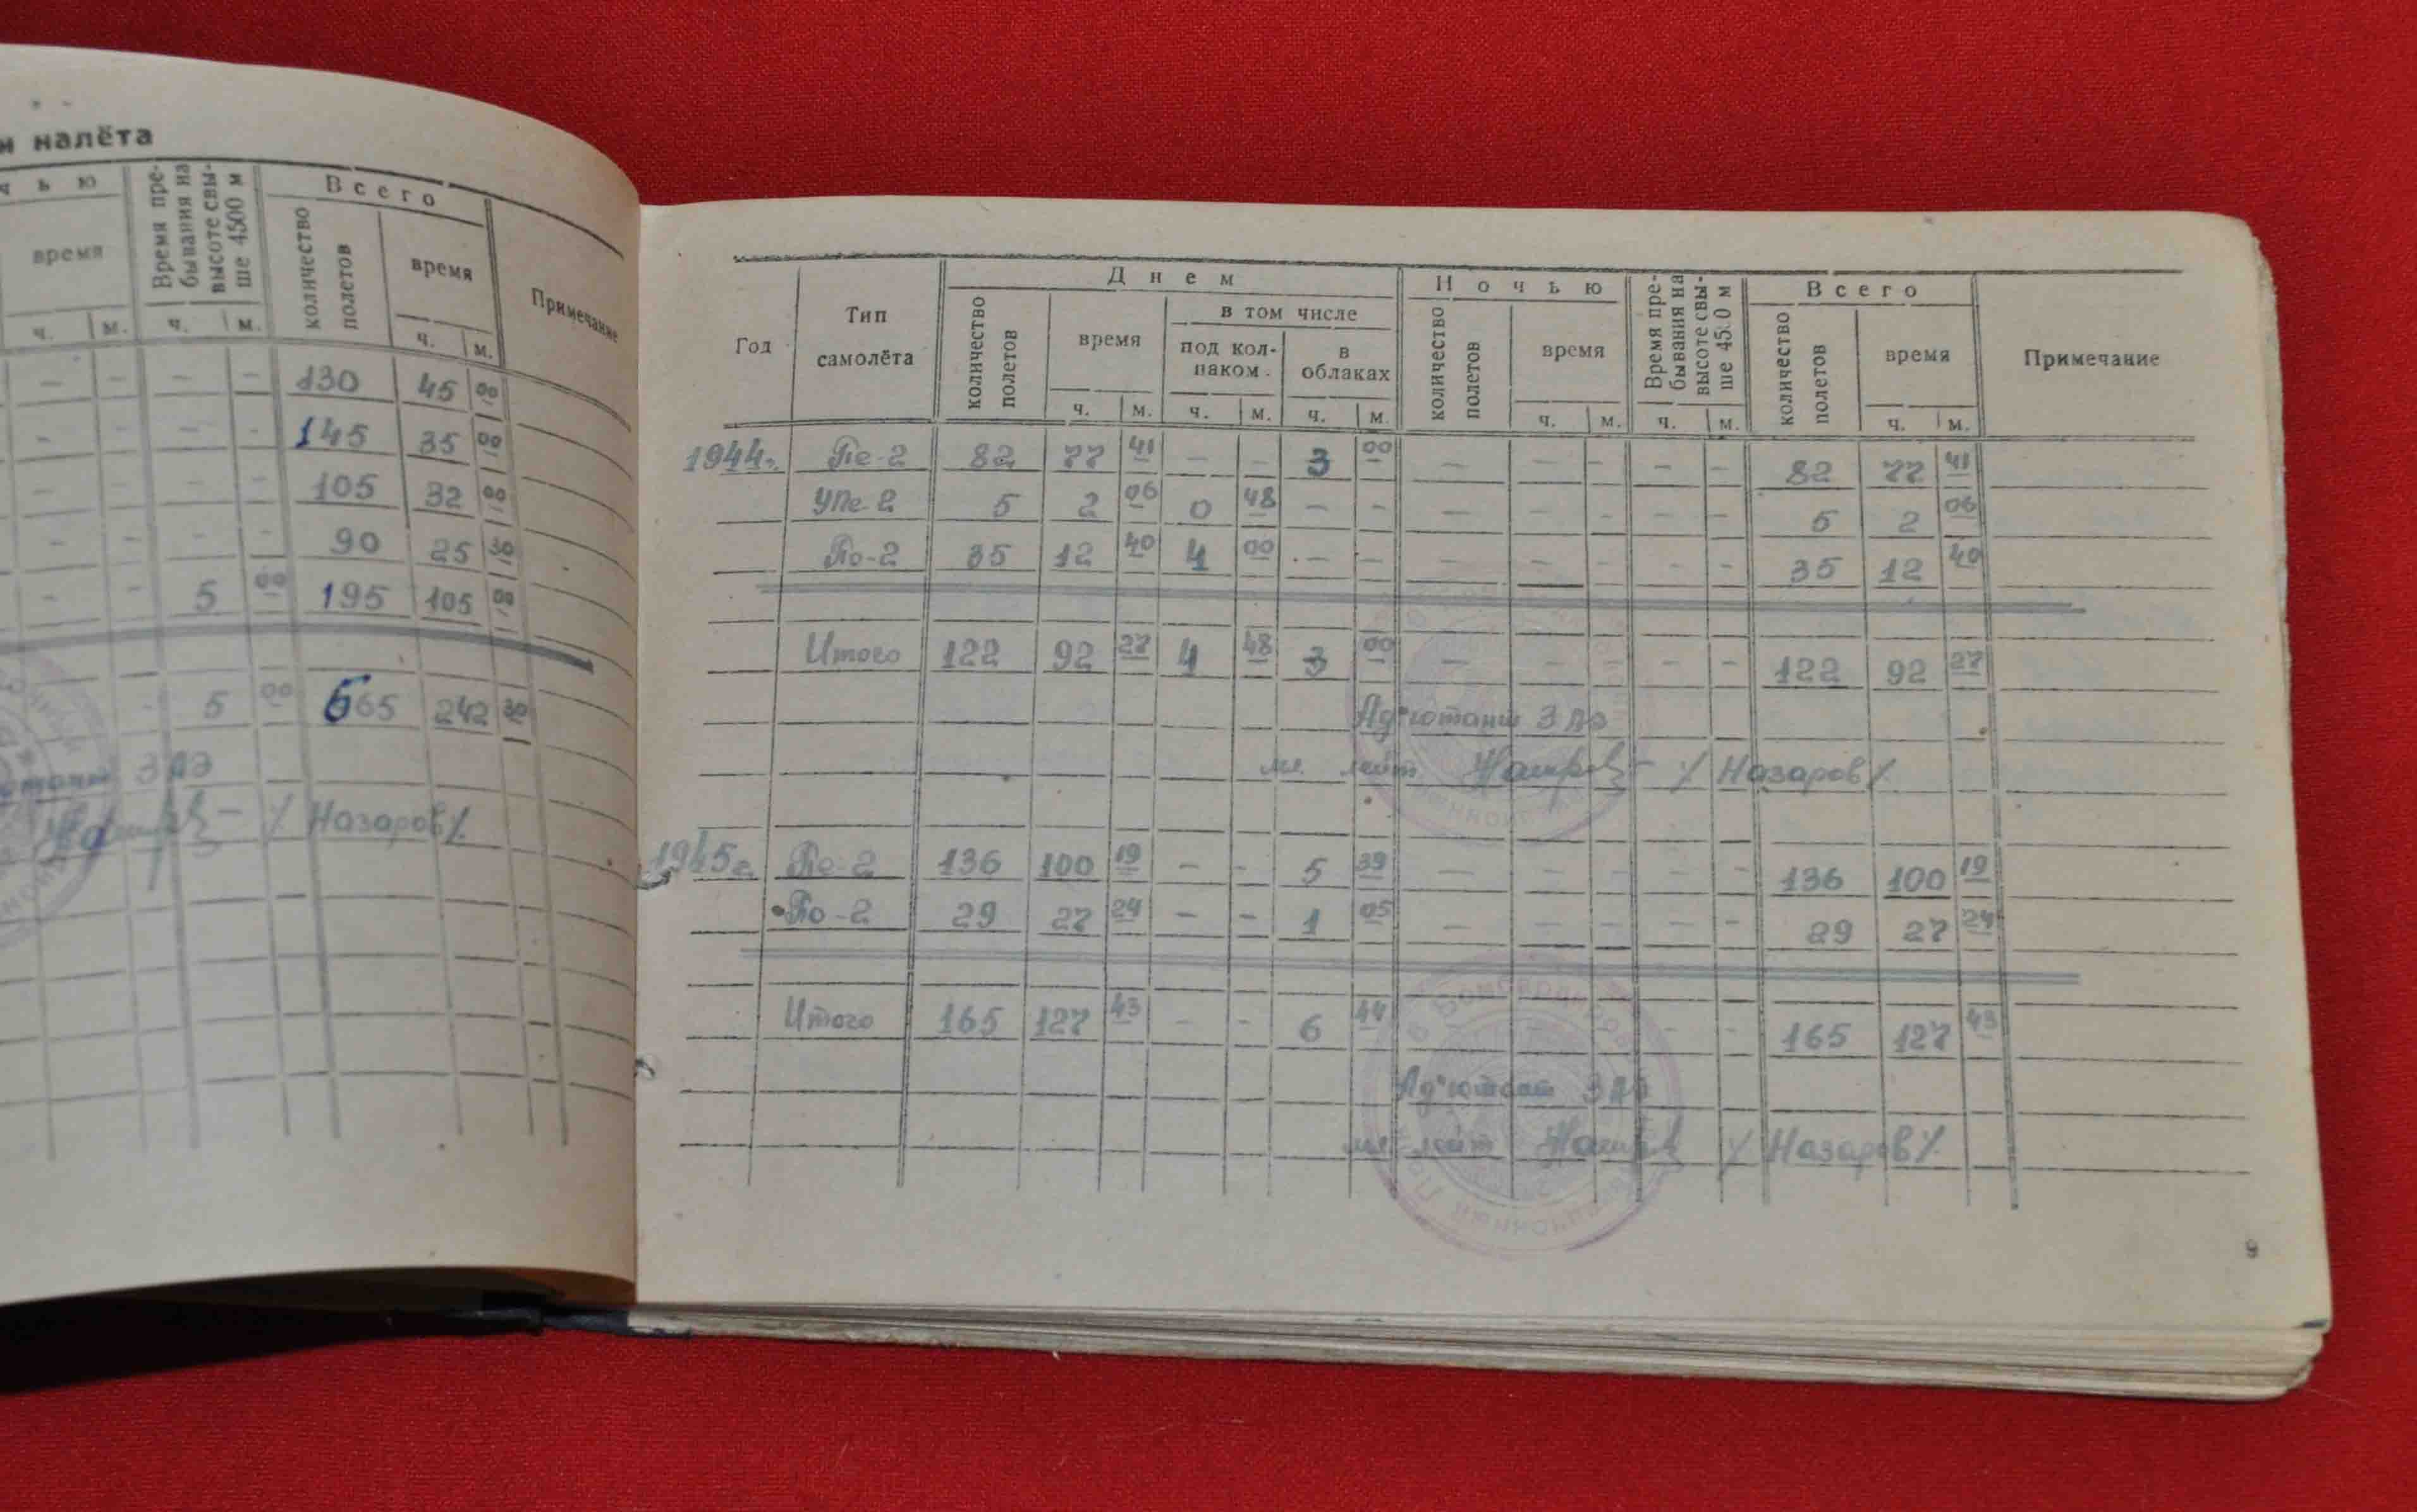 и налёта
ч ь ю
Время пре-
бывания на
высоте свы-
ше 4500 м
Всего
Примечание
время
количество
полетов
время
ч. м. ч. м. ч. м.
— — — — 130 45 00
- - - - 145 35 00
— - - - 105 32 00
- - - - 90 25 30
- - 5 00 195 105 00
- 5 00 665 242 30
3 АЭ
/Назаров/
Год
Тип
самолёта
Днем
количество
полетов
время
в том числе
под кол-
паком.
в
облаках
Ночью
количество
полетов
время
Время пре-
бывания на
высоте свы-
ше 4500 м
Всего
количество
полетов
время
Примечание
ч. м. ч. м. ч. м. ч. м. ч. м. ч. м.
1944г. Пе-2 82 77 41 — - 3 00 — — - — - 82 77 41
УПе-2 5 2 06 0 48 — - — — - — - 5 2 06
По-2 35 12 40 4 00 — — — — - - - 35 12 40
Итого 122 92 27 4 48 3 00 — — - — - 122 92 27
Адъютант 3 АЭ
мл. лейт /Назаров/
1945г. Пе-2 136 100 19 — - 5 39 — — - - - 136 100 19
По-2 29 27 24 — - 1 05 — — - — - 29 27 24
Итого 165 127 43 - - 6 44 - - 165 127 43
Адъютант 3 АЭ
мл лейт /Назаров/
9